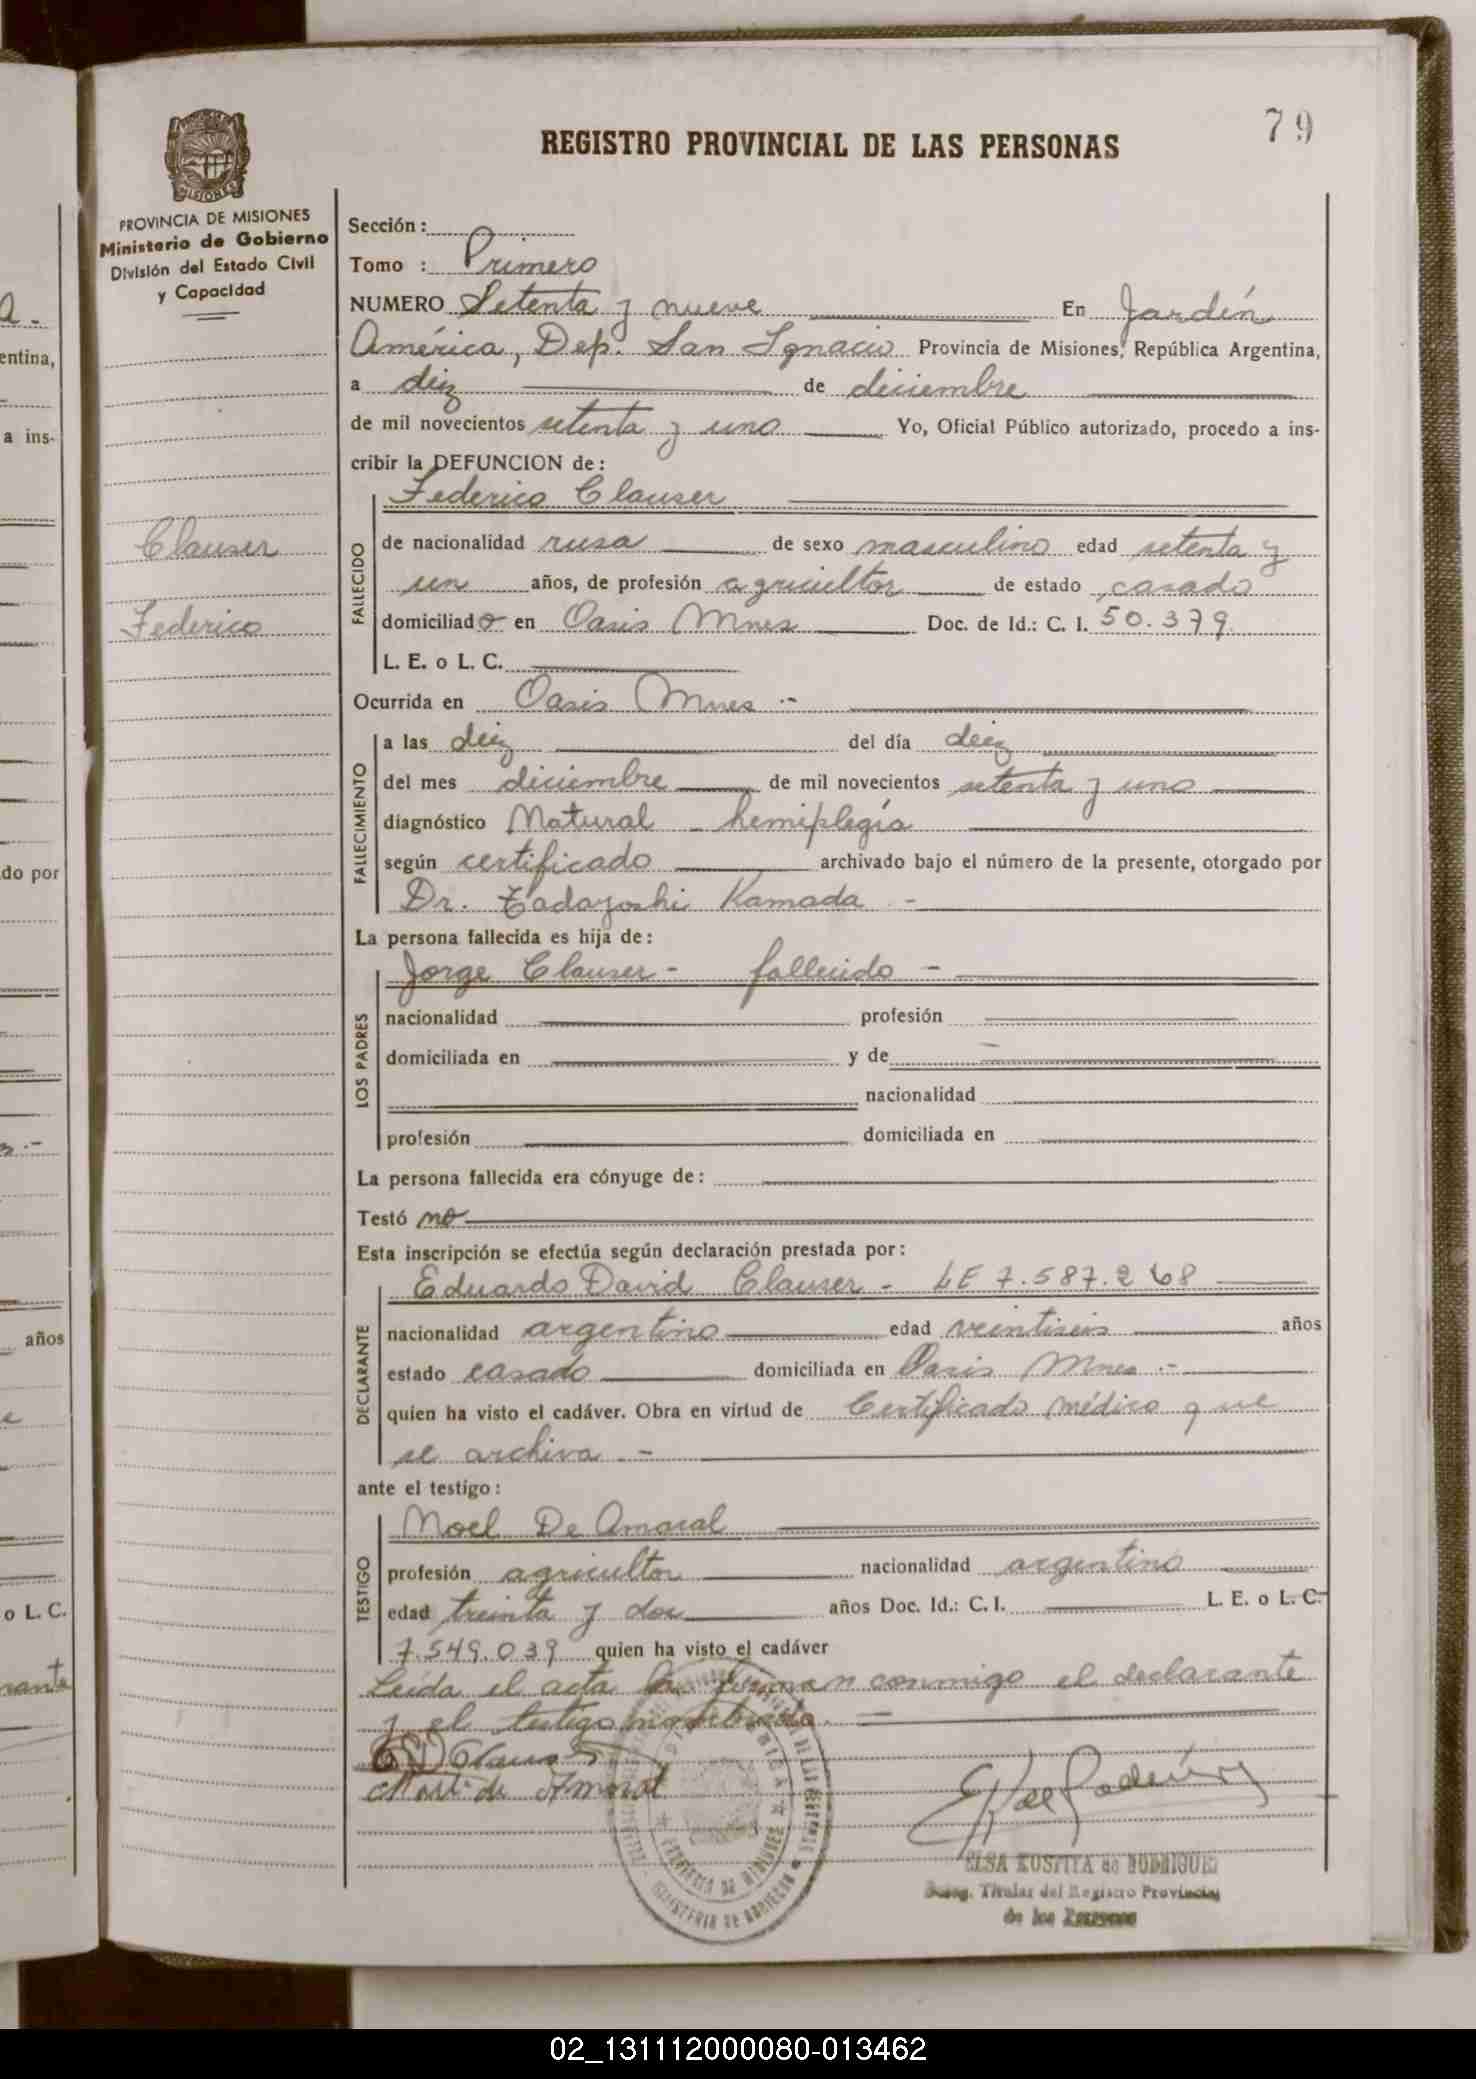 79
REGISTRO PROVINCIAL DE LAS PERSONAS
PROVINCIA DE MISIONES
Ministerio de Gobierno
División del Estado Civil
y Capacidad
Clauser
Federico
Sección:
Tomo : Primero
NUMERO Setenta y nueve En Jardín
América, Dep. San Ignacio Provincia de Misiones, República Argentina,
a diez de diciembre
de mil novecientos setenta y uno Yo, Oficial Público autorizado, procedo a ins-
cribir la DEFUNCION de:
Federico Clauser
FALLECIDO
de nacionalidad rusa de sexo masculino edad setenta y
un años, de profesión agricultor de estado casado
domiciliado en Oasis Mnes Doc. de Id.: C. I. 50.379
L. E. o L. C.
Ocurrida en Oasis Mnes .-
FALLECIMIENTO
a las diez del día diez
del mes diciembre de mil novecientos setenta y uno
diagnóstico Natural - hemiplegía
según certificado archivado bajo el número de la presente, otorgado por
Dr. Tadayoshi Kamada -
La persona fallecida es hija de:
LOS PADRES
Jorge Clauser - fallecido -
nacionalidad profesión
domiciliada en y de
nacionalidad
profesión domiciliada en
La persona fallecida era cónyuge de:
Testó no
Esta inscripción se efectúa según declaración prestada por:
DECLARANTE
Eduardo David Clauser - LE 7.587.268
nacionalidad argentino edad veintiseis años
estado casado domiciliada en Oasis Mnes .-
quien ha visto el cadáver. Obra en virtud de Certificado médico que
se archiva .-
ante el testigo:
TESTIGO
Noel De Amaral
profesión agricultor nacionalidad argentino
edad treinta y dos años Doc. Id.: C. I. L. E. o L. C.
7.549.039 quien ha visto el cadáver
Leída el acta la firman conmigo el declarante
y el testigo nombrado. -
Clauser
de Amaral
ELSA KOSTYA de RODRIGUEZ
Titular del Registro Provincial
de las Personas
PROVINCIA DE MISIONES
MINISTERIO DE GOBIERNO
a ins-
entina,
do por
años
o L. C.
02_131112000080-013462